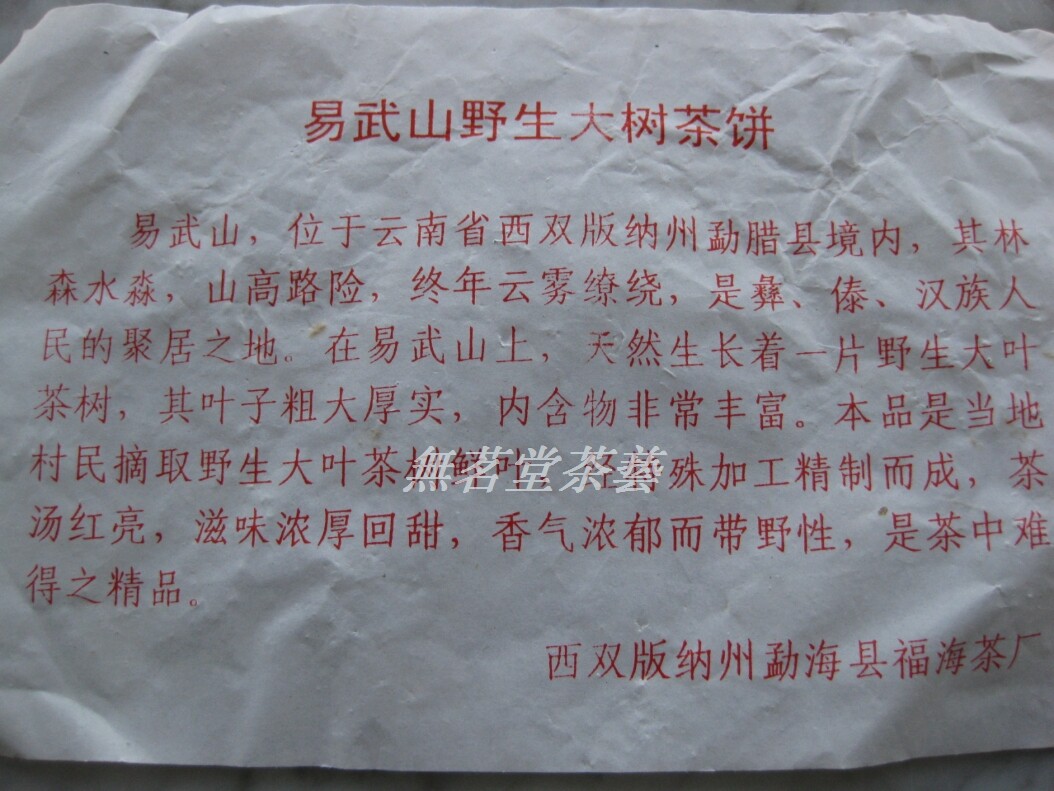 易武山野生大树茶饼
易武山，位于云南省西双版纳州勐腊县境内，其林
森水淼，山高路险，终年云雾缭绕，是彝、傣、汉族人
民的聚居之地。在易武山上，天然生长着一片野生大叶
茶树，其叶子粗大厚实，内含物非常丰富。本品是当地
村民摘取野生大叶茶殊加工精制而成，茶
無茗堂茶藝
汤红亮，滋味浓厚回甜，香气浓郁而带野性，是茶中难
得之精品。
西双版纳州勐海县福海茶厂